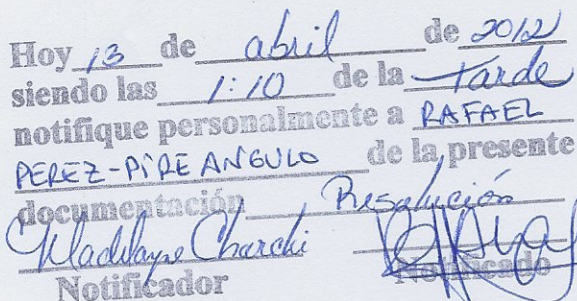 Hoy 13 de abril de 2012
siendo las 1:10 de la Tarde
notifique personalmente a RAFAEL
PEREZ-PIRE ANGULO de la presente
documentación Resolución
Notificador Notificado